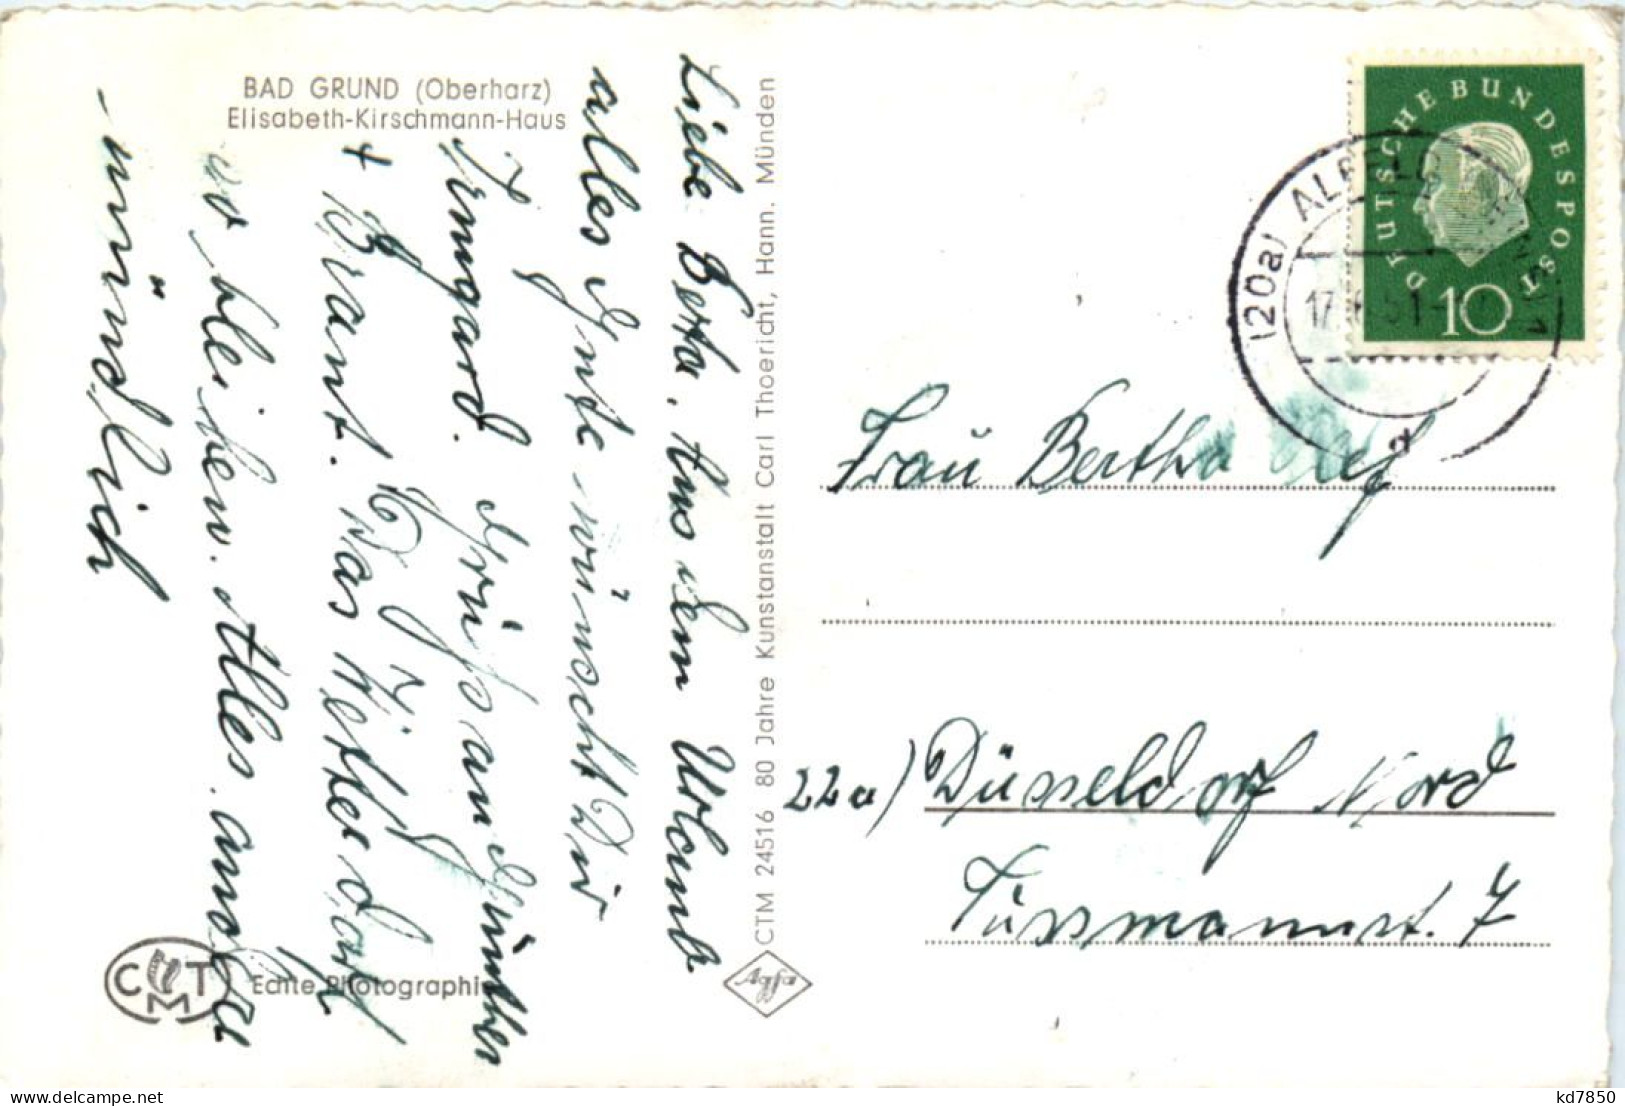 BAD GRUND (Oberharz)
Elisabeth-Kirschmann-Haus
Liebe Berta, Aus dem Urlaub
alles Gute wünscht Dir
Irmgard. Grüß an Günther
+ Brant.
Das Wetter darf
so bleiben. Alles andere
mündlich
CTM 24516 80 Jahre Kunstanstalt Carl Thoericht, Hann. Münden
Agfa
CMT
Echte Photographie
DEUTSCHE BUNDESPOST
10
(20a) ALFELD
17
61
a
Frau Bertha
22a) Düsseldorf Nord
Tussmannst. 7
kd7850